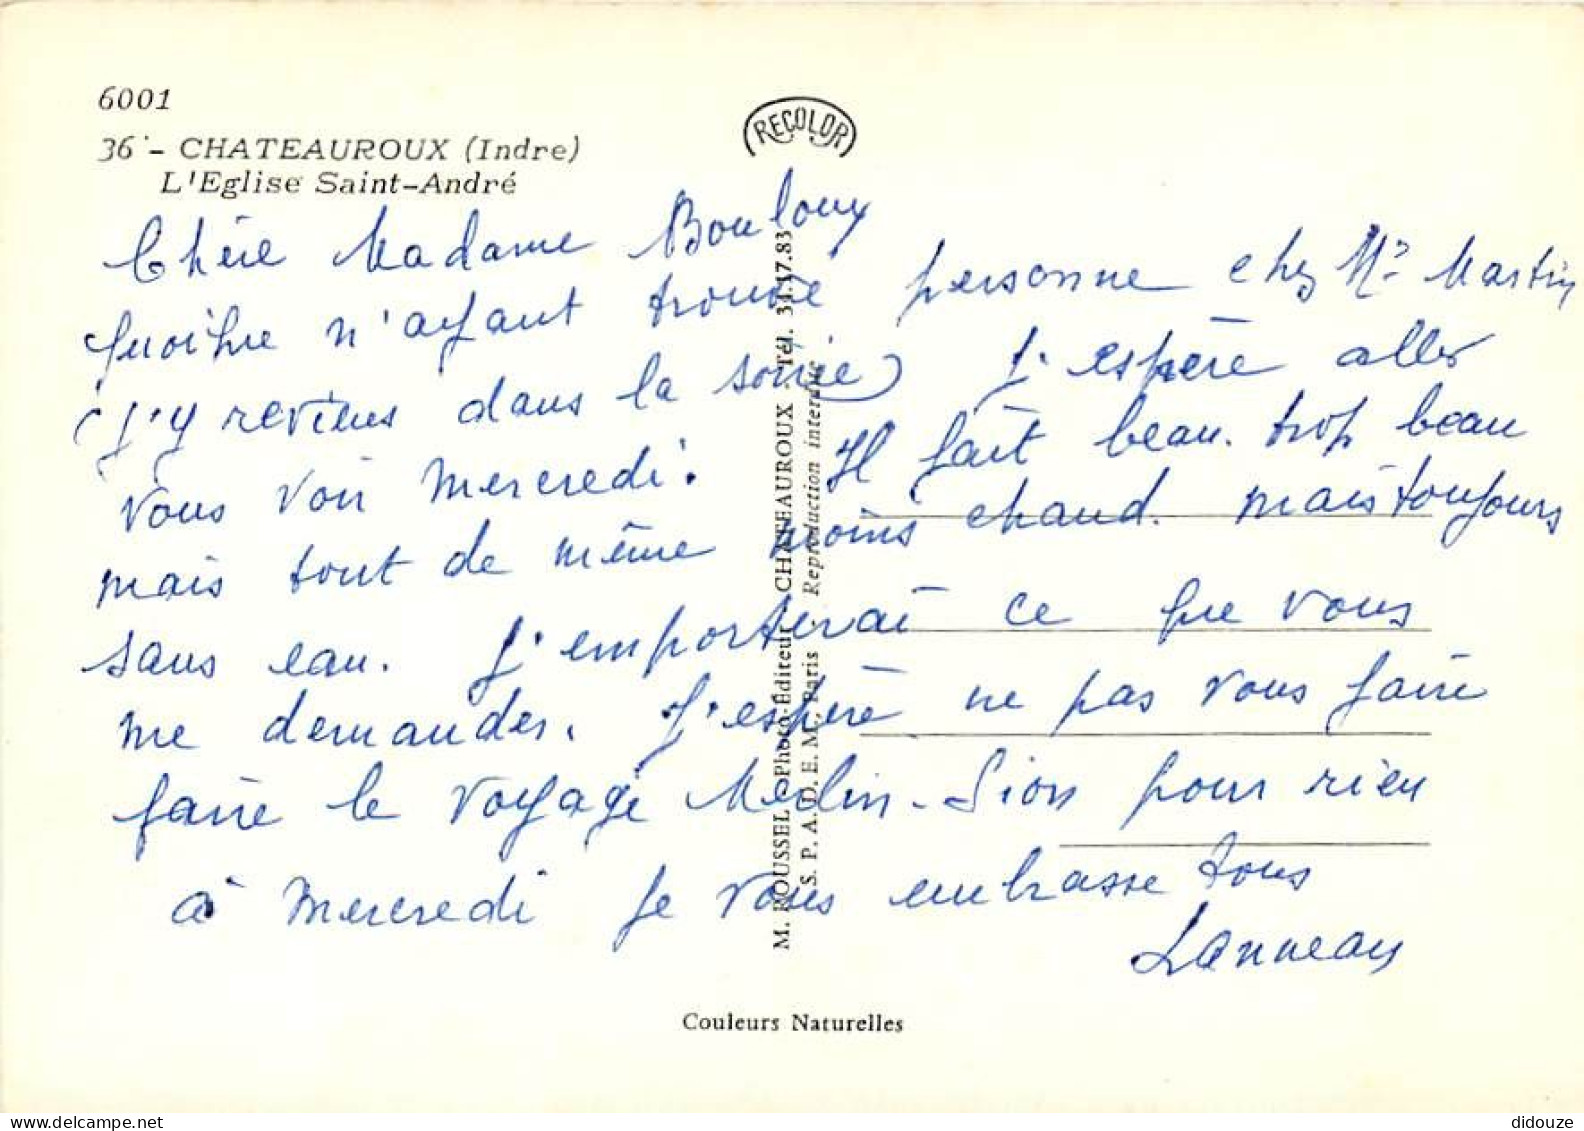 6001
36 - CHATEAUROUX (Indre)
L'Eglise Saint-André
RECOLOR
Chère Madame Boulouy
quoique n'ayant trouvé personne chez Mr Martin
(j'y reviens dans la soirée) J'espère aller
vous voir mercredi. Il fait beau. trop beau
mais tout de même moins chaud. mais toujours
sans eau. J'emporterai ce que vous
me demandez. J'espère ne pas vous faire
faire le voyage Merlin-Sion pour rien
à mercredi je vous embrasse tous
Lanneau
M. ROUSSEL - Photo-Éditeur - CHATEAUROUX - Tél. 34.17.83
S. P. A. D. E. M., Paris - Reproduction interdite
Couleurs Naturelles
delcampe.net
didouze